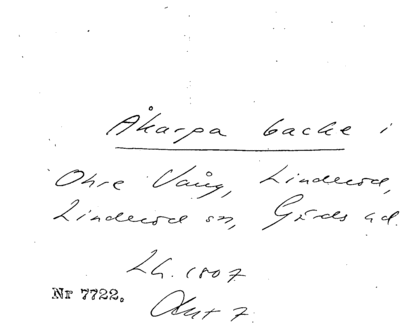 Åkarpa backe i
Ohre Vång, Linderöd,
Linderöd sn, Gärds hd.
LH. 1807
Nr 7722. Akt 7